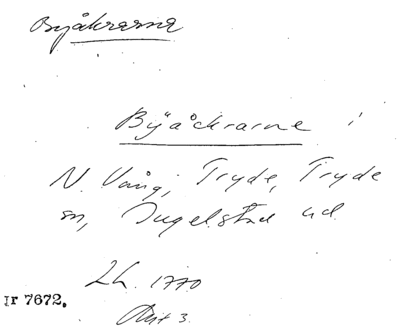 Byåkrarna
Byåckrarne i
N. Vång, Tryde, Tryde
sn, Ingelstad hd.
Lh. 1770
Akt 3.
Ir 7672.